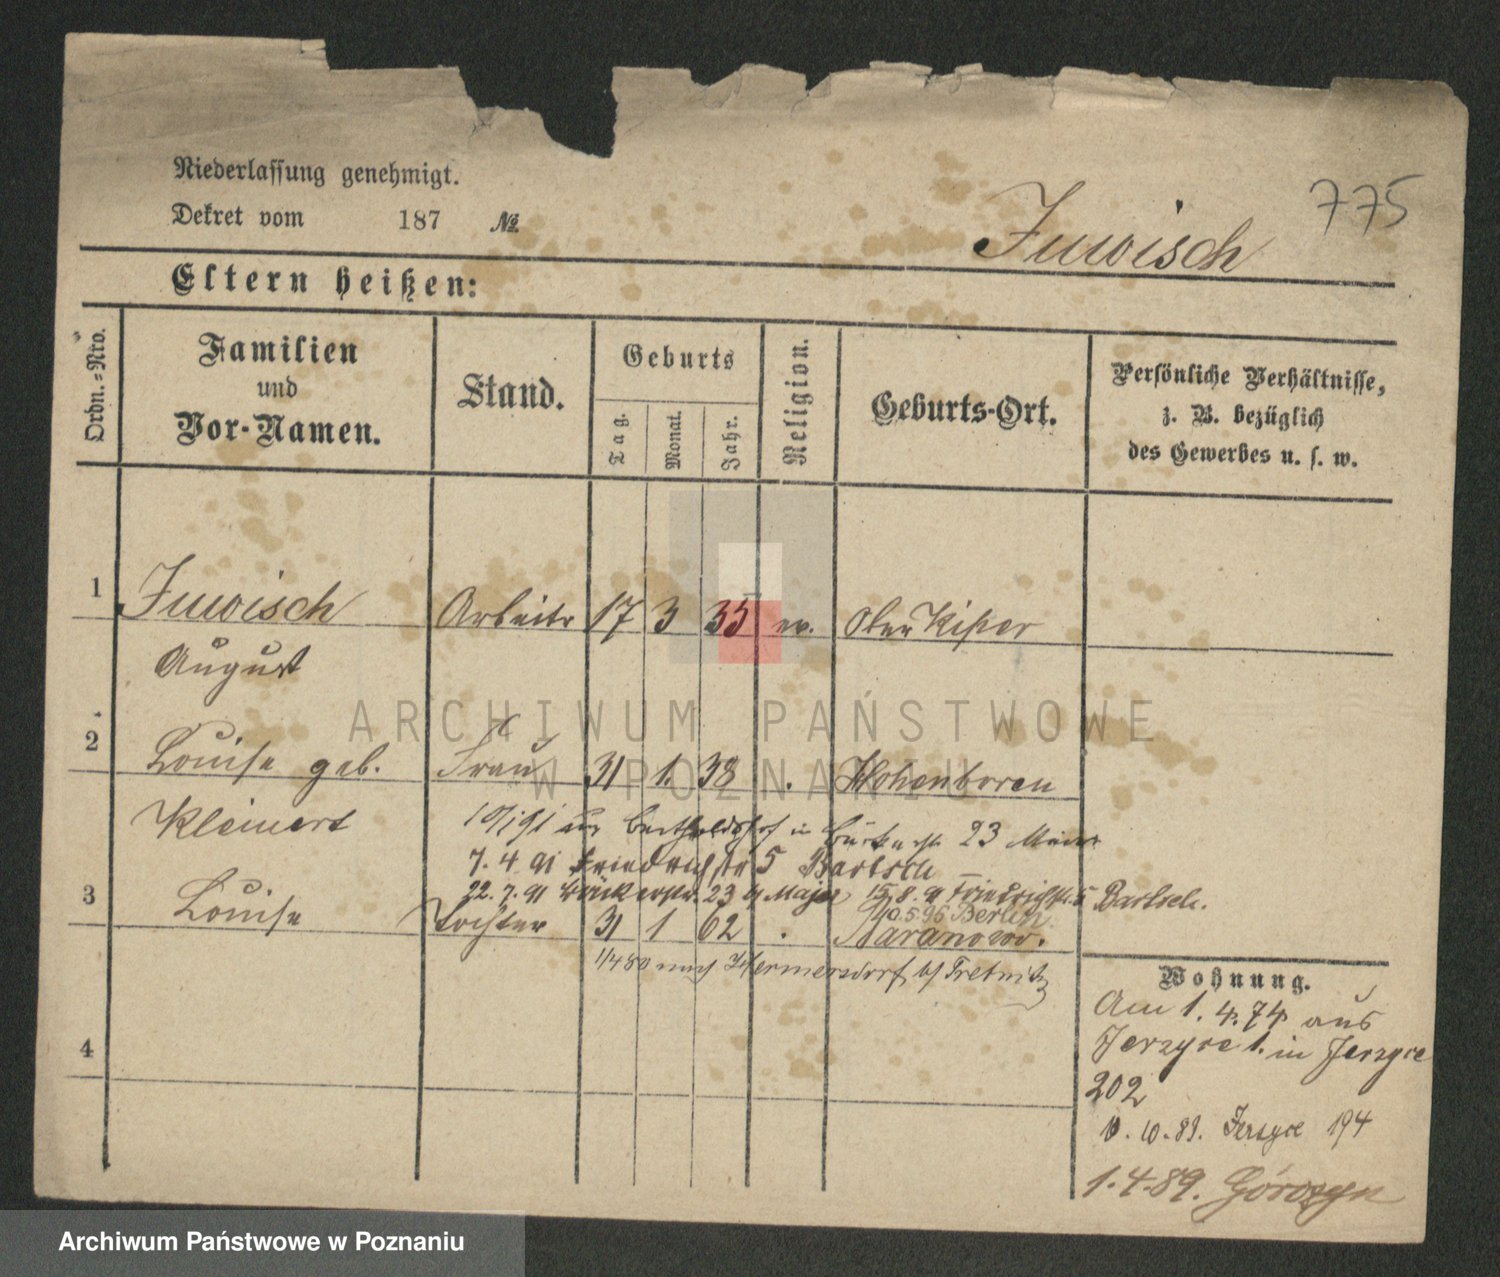 775
Niederlassung genehmigt.
Dekret vom 187 №
Juwisch
Eltern heißen:
Ordn.-Nro.
Familien und Vor-Namen.
Stand.
Geburts
Tag.
Monat.
Jahr.
Religion.
Geburts-Ort.
Persönliche Verhältnisse,
z. B. bezüglich
des Gewerbes u. s. w.
1 Juwisch Arbeiter 17 3 35 ev. Ober
August
2 Louise geb. Frau 31 1. 38 . Hohenboren
Kleinert
23
7. 4. 91 Friedrichstr 5 Bartsch
22. 7. 91 23 Major 15. 8. 91 Friedrichstr. 5 Bartsch.
10. 5. 95 Berlin
3 Louise Tochter 31 1 62 . Naranowo.
1/4 80 nach Hermersdorf b/ Trebnitz
4
Wohnung.
Am 1. 4. 74 aus
Jerzyce 1. in Jerzyce
202
10. 83. Jerzyce 194
1. 4. 89. Górczyn
ARCHIWUM PAŃSTWOWE
W POZNANIU
Archiwum Państwowe w Poznaniu